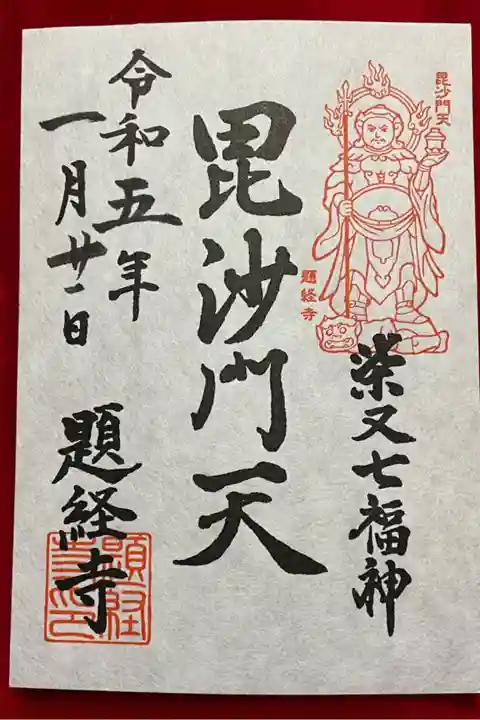 毘沙門天
題経寺
柴又七福神
毘沙門天
令和五年
一月廿一日
題経寺